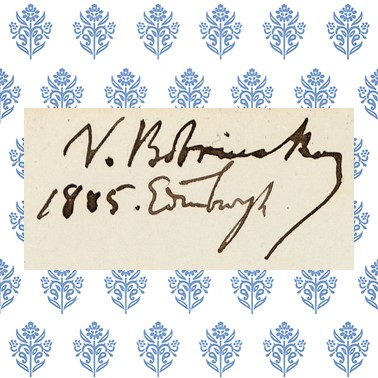 V. Bobrinskoy
1885. Edinburgh